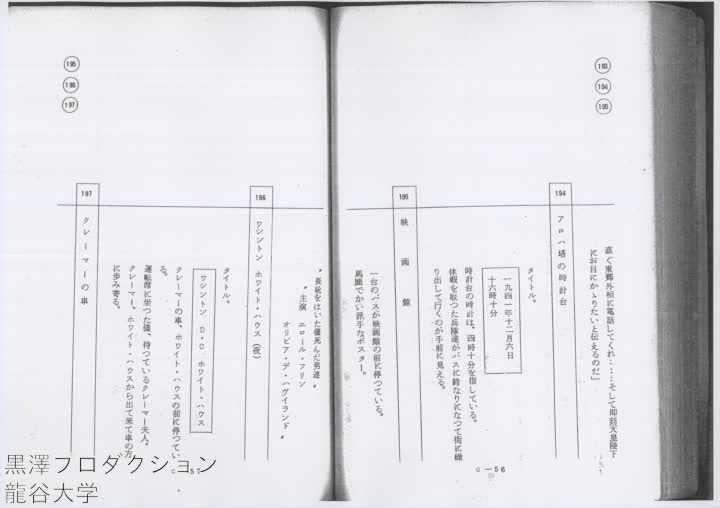 193
194
195
直ぐ東郷外相に電話してくれ……そして即刻天皇陛下
にお目にかゝりたいと伝えるのだ」
194
アロハ塔の時計台
タイトル。
一九四一年十二月六日
十六時十分
時計台の時計は、四時十分を指している。
休暇を取つた兵隊達がバスに鈴なりになつて街に繰
り出して行くのが手前に見える。
195
映画館
一台のバスが映画館の前に停つている。
馬鹿でかい派手なポスター。
C-56
195
196
197
〝長靴をはいた儘死んだ男達〟
〝主演 エロール・フリン
オリビア・デ・ハヴイランド〟
196
ワシントン ホワイト・ハウス(夜)
タイトル。
ワシントン D・C ホワイト・ハウス
クレーマーの車、ホワイト・ハウスの前に停つてい
る。
運転席に坐つた儘、待つているクレーマー夫人。
クレーマー、ホワイト・ハウスから出て来て車の方
に歩み寄る。
197
クレーマーの車
C-57
黒澤プロダクション
龍谷大学